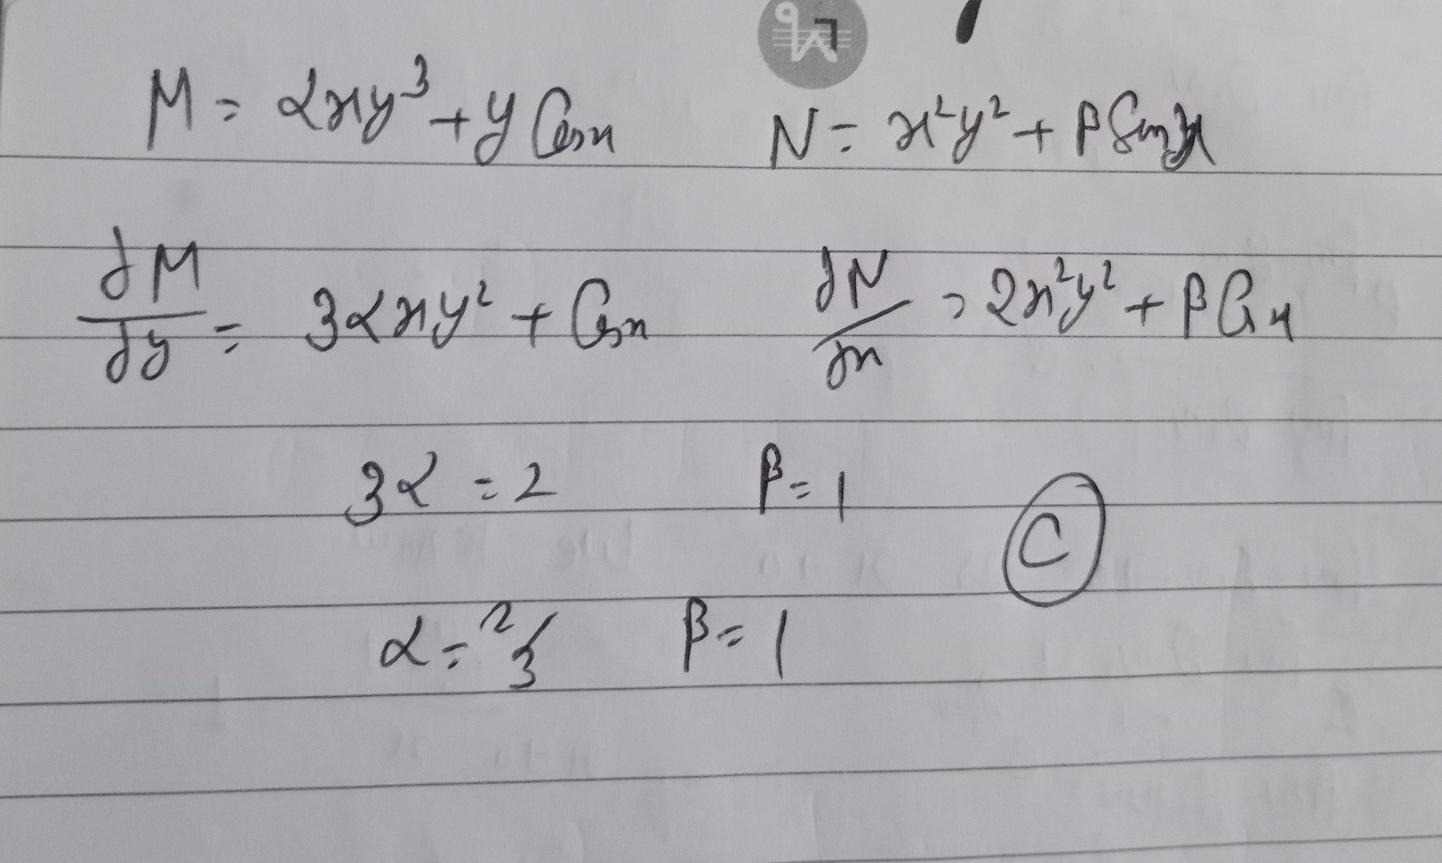 M = αxy³ + y Cosx N = x²y² + β Sinx
∂M/∂y = 3αxy² + Cosx ∂N/∂x = 2x²y² + β Cosx
3α = 2 β = 1
C
α = 2/3 β = 1